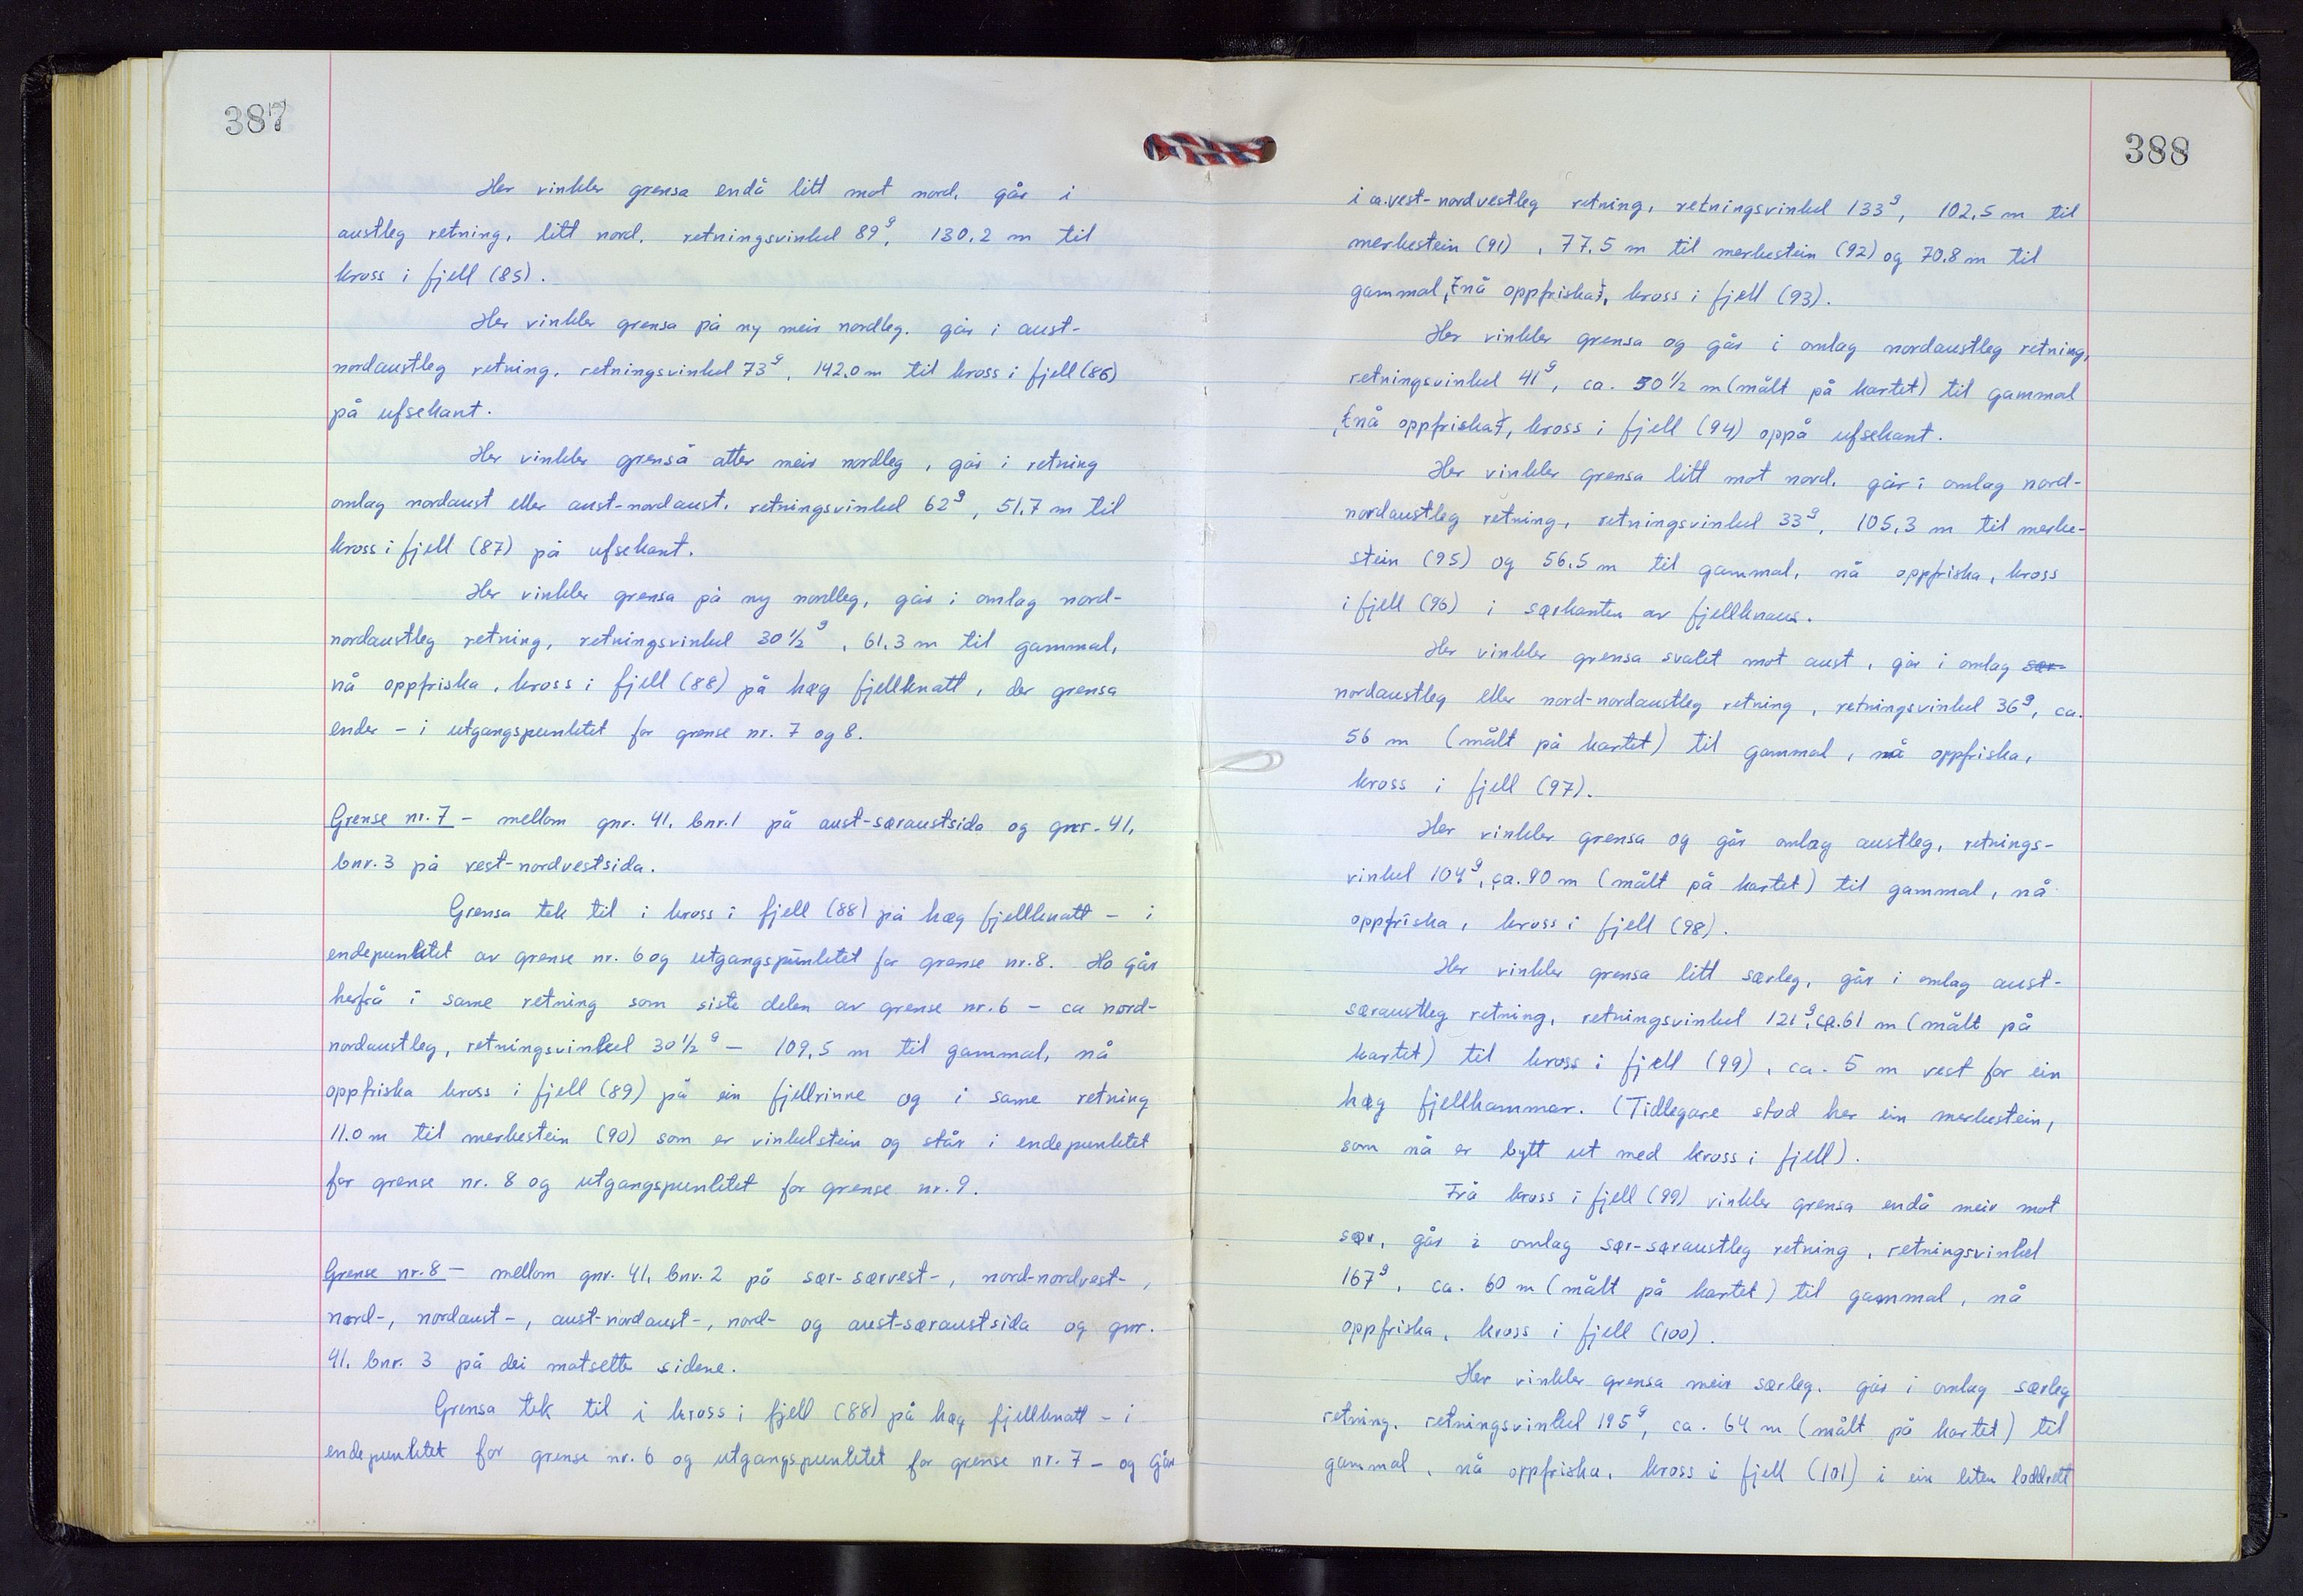 387
Her vinkler grensa endå litt mot nord, går i
austleg retning, litt nord, retningsvinkel 89g, 130,2 m til
kross i fjell (85).
Her vinkler grensa på ny meir nordleg, går i aust-
nordaustleg retning, retningsvinkel 73g, 142,0 m til kross i fjell (86)
på ufsekant.
Her vinkler grensa atter meir nordleg, går i retning
omlag nordaust eller aust-nordaust, retningsvinkel 62g, 51,7 m til
kross i fjell (87) på ufsekant.
Her vinkler grensa på ny nordleg, går i omlag nord-
nordaustleg retning, retningsvinkel 30 1/2g, 61,3 m til gammal,
nå oppfriska, kross i fjell (88) på høg fjellknatt, der grensa
ender - i utgangspunktet for grense nr. 7 og 8.
Grense nr. 7 - mellom gnr. 41, bnr. 1 på aust-søraustsida og gnr. 41,
bnr. 3 på vest-nordvestsida.
Grensa tek til i kross i fjell (88) på høg fjellknatt - i
endepunktet av grense nr. 6 og utgangspunktet for grense nr. 8. Ho går
herfrå i same retning som siste delen av grense nr. 6 - ca nord-
nordaustleg, retningsvinkel 30 1/2g - 109,5 m til gammal, nå
oppfriska kross i fjell (89) på ein fjellrinne og i same retning
11,0 m til merkestein (90) som er vinkelstein og står i endepunktet
for grense nr. 8 og utgangspunktet for grense nr. 9.
Grense nr. 8 - mellom gnr. 41, bnr. 2 på sør-sørvest-, nord-nordvest-,
nord-, nordaust-, aust-nordaust-, nord- og aust-søraustsida og gnr.
41, bnr. 3 på dei motsette sidene.
Grensa tek til i kross i fjell (88) på høg fjellknatt - i
endepunktet for grense nr. 6 og utgangspunktet for grense nr. 7 - og går
388
i ca. vest-nordvestleg retning, retningsvinkel 133g, 102,5 m til
merkestein (91), 77,5 m til merkestein (92) og 70,8 m til
gammal, nå oppfriska, kross i fjell (93).
Her vinkler grensa og går i omlag nordaustleg retning,
retningsvinkel 41g, ca. 50 1/2 m (målt på kartet) til gammal
, nå oppfriska, kross i fjell (94) oppå ufsekant.
Her vinkler grensa litt mot nord, går i omlag nord-
nordaustleg retning, retningsvinkel 33g, 105,3 m til merke-
stein (95) og 56,5 m til gammal, nå oppfriska, kross
i fjell (96) i sørkanten av fjellknaus.
Her vinkler grensa svakt mot aust, går i omlag sør-
nordaustleg eller nord-nordaustleg retning, retningsvinkel 36g, ca.
56 m (målt på kartet) til gammal, nå oppfriska,
kross i fjell (97).
Her vinkler grensa og går omlag austleg, retnings-
vinkel 104g, ca. 90 m (målt på kartet) til gammal, nå
oppfriska, kross i fjell (98).
Her vinkler grensa litt sørleg, går i omlag aust-
søraustleg retning, retningsvinkel 121g, ca. 61 m (målt på
kartet) til kross i fjell (99), ca. 5 m vest for ein
høg fjellhammar. (Tidlegare stod her ein merkestein,
som nå er bytt ut med kross i fjell).
Frå kross i fjell (99) vinkler grensa endå meir mot
sør, går i omlag sør-søraustleg retning, retningsvinkel
167g, ca. 60 m (målt på kartet) til gammal, nå
oppfriska, kross i fjell (100).
Her vinkler grensa meir sørleg, går i omlag sørleg
retning, retningsvinkel 195g, ca. 64 m (målt på kartet) til
gammal, nå oppfriska, kross i fjell (101) i ein liten loddrett